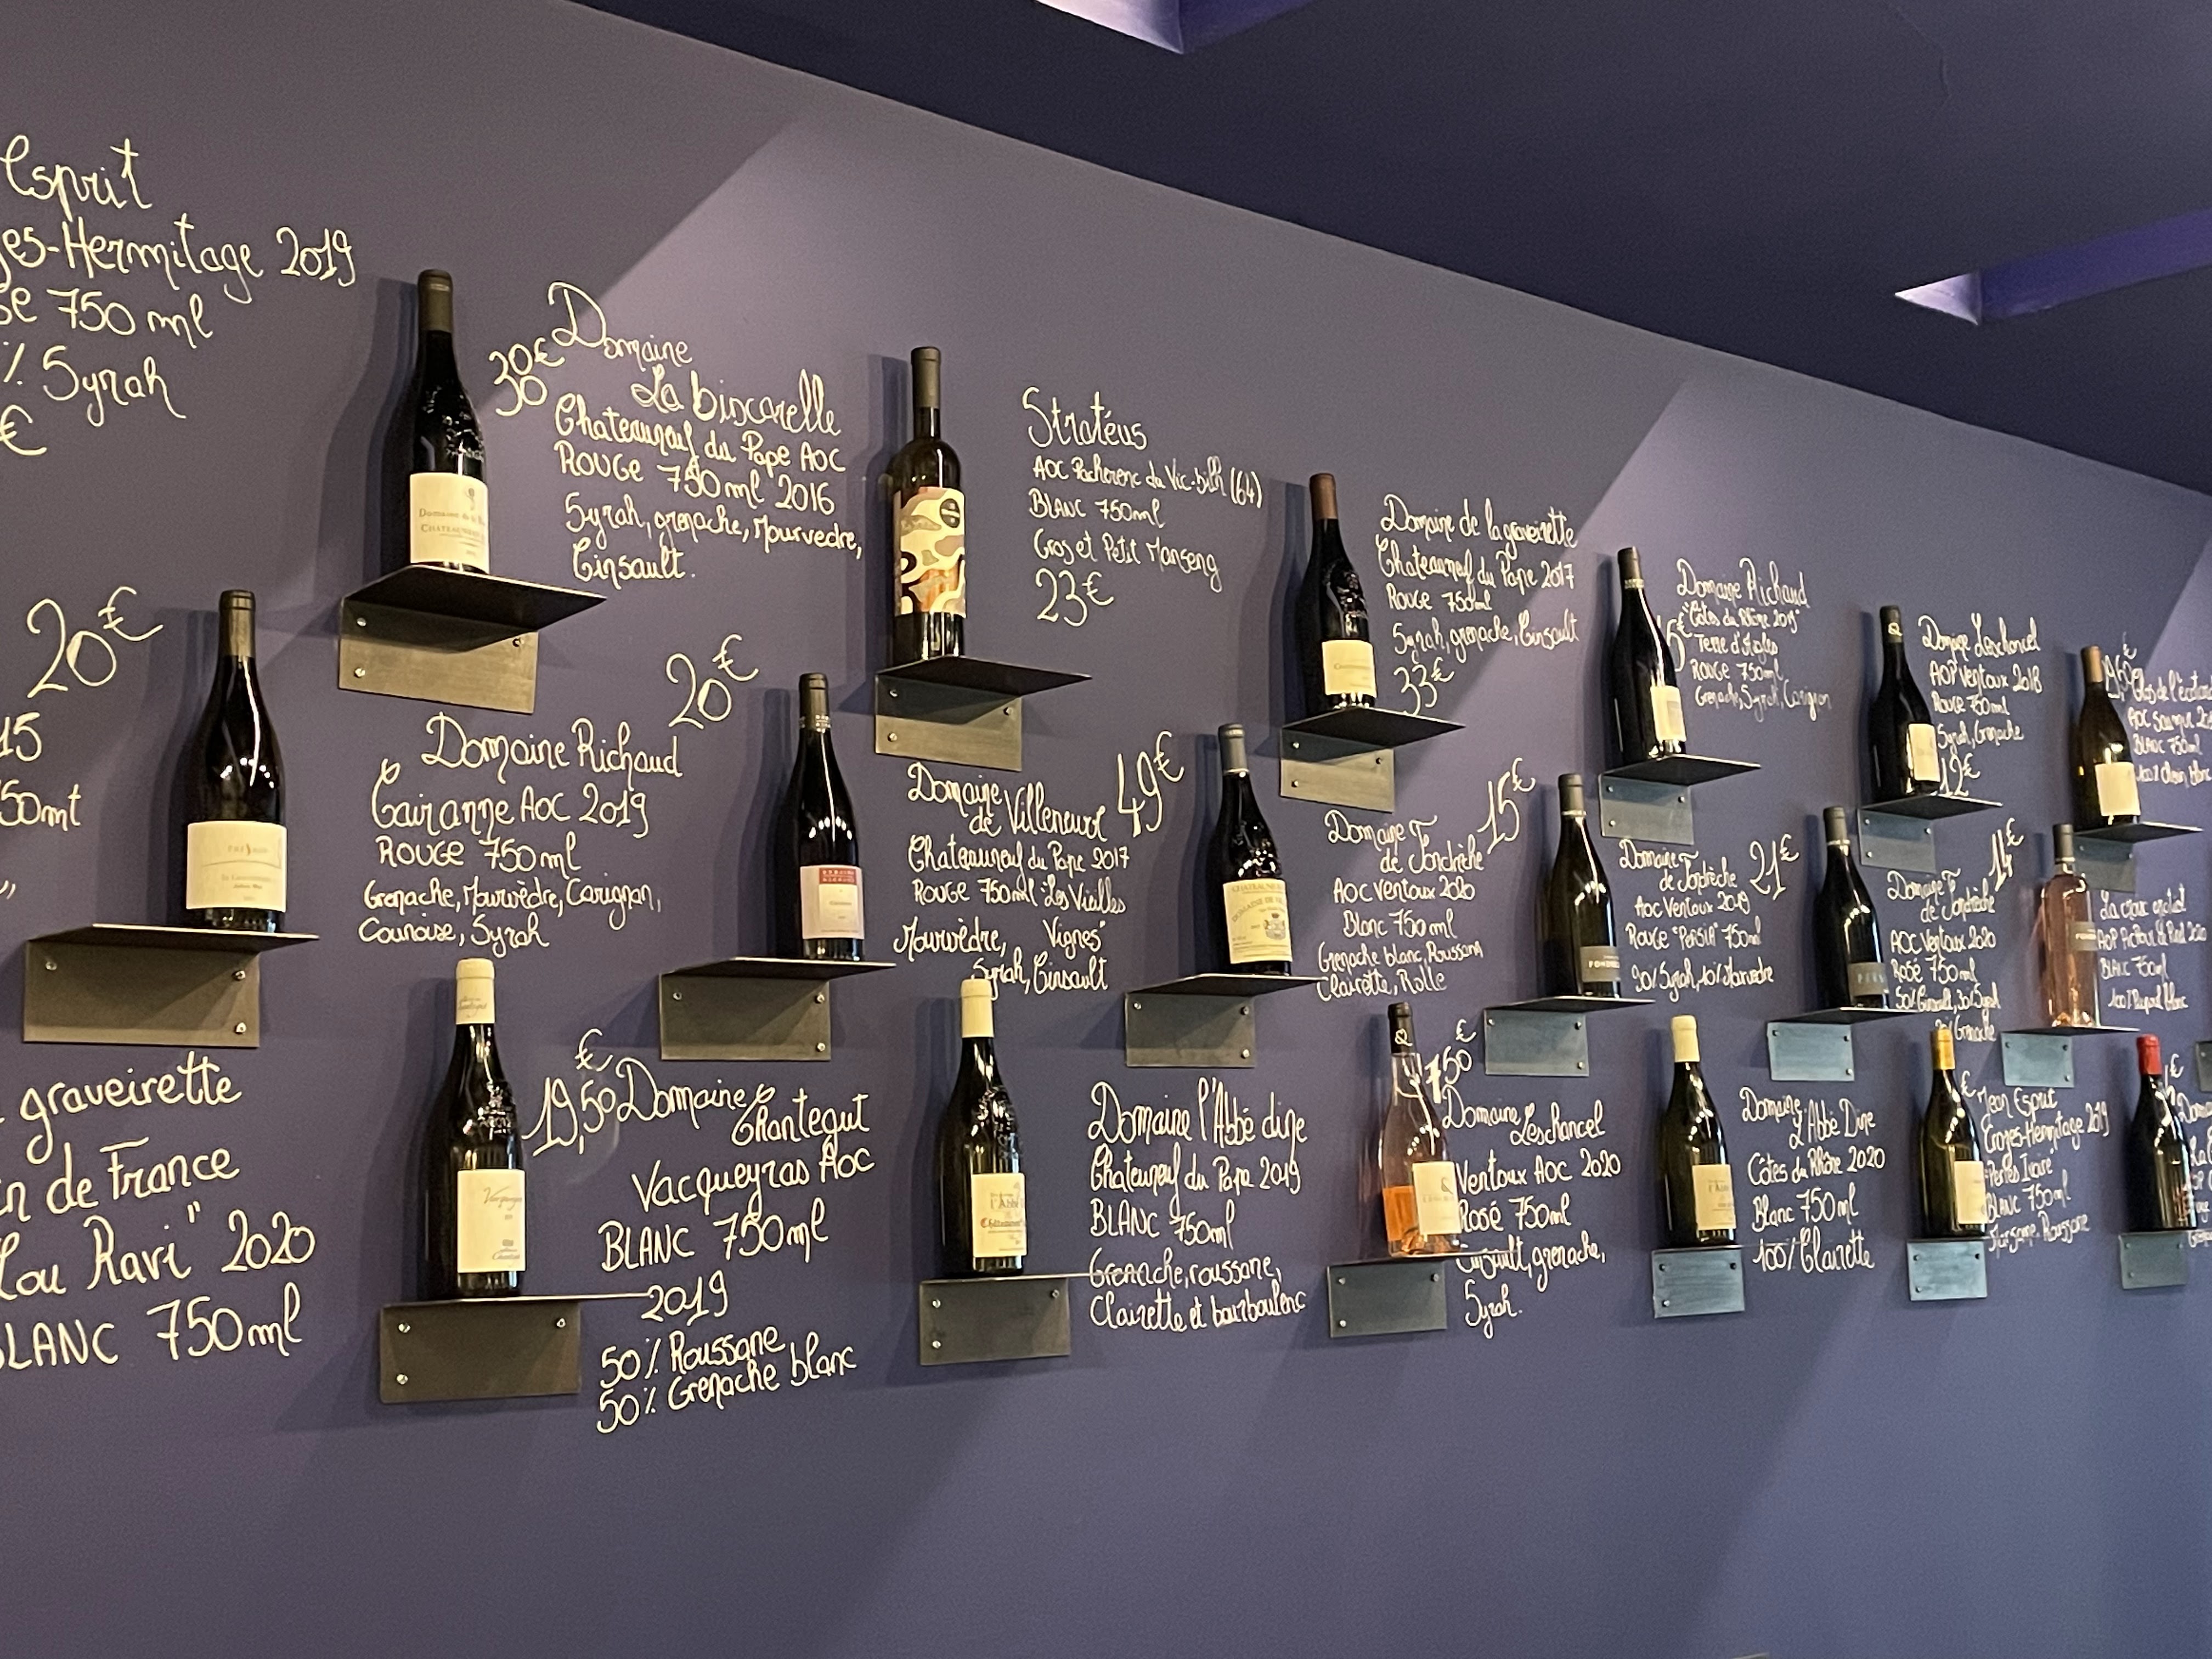 Esprit
es-Hermitage 2019
se 750 ml
% Syrah
€
30€
30
Domaine
La biscarelle
Chateauneuf du Pape AOC
ROUGE 750 ml 2016
Syrah, grenache, Mourvedre,
Cinsault.
Stratéus
AOC Pacherenc du Vic-bilh (64)
BLANC 750ml
Gros et Petit Manseng
23€
Domaine de la graveirette
Chateauneuf du Pape 2017
Rouge 750ml
Syrah, grenache, Cinsault
33€
Domaine Richaud
"Côtes du Rhône 2019"
Terre d'Aigles
ROUGE 750ml
Grenache, Syrah, Carignan
Domaine Leschancel
AOP Ventoux 2018
Rouge 750ml
Syrah, Grenache
12€
Clos de l'écotar
AOC Saumur
BLANC 750ml
100% Chenin blanc
20€
15
50ml
20€
Domaine Richaud
Cairanne AOC 2019
ROUGE 750ml
Grenache, Mourvèdre, Carignan,
Counoise, Syrah
49€
Domaine
de Villeneuve
Chateauneuf du Pape 2017
Rouge 750ml "Les Vieilles
Vignes"
Mourvèdre,
Syrah, Cinsault
15€
Domaine
de Fondrèche
AOC Ventoux 2020
Blanc 750ml
Grenache blanc, Roussane
Clairette, Rolle
21€
Domaine
de Fondrèche
AOC Ventoux 2019
Rouge "PERSIA" 750ml
90% Syrah, 10% Mourvedre
14€
Domaine
de Fondrèche
AOC Ventoux 2020
Rosé 750ml
50% Cinsault, 30% Syrah
20% Grenache
La croix
BLANC 750ml
graveirette
in de France
Lou Ravi" 2020
BLANC 750ml
€
19,50
Domaine
Chantegut
Vacqueyras AOC
BLANC 750ml
2019
50% Roussane
50% Grenache blanc
Domaine l'Abbé dine
Chateuneuf du Pape 2019
BLANC 750ml
Grenache, roussane,
Clairette et bourboulenc
€
7,50
Domaine
Leschancel
Ventoux AOC 2020
Rosé 750ml
Cinsault, grenache,
Syrah.
Domaine
L'Abbé Dine
Côtes du Rhône 2020
Blanc 750ml
100% Clairette
€
Jean Esprit
Crozes-Hermitage 2019
"Perles Ivoire"
BLANC 750ml
Marsanne, Roussane